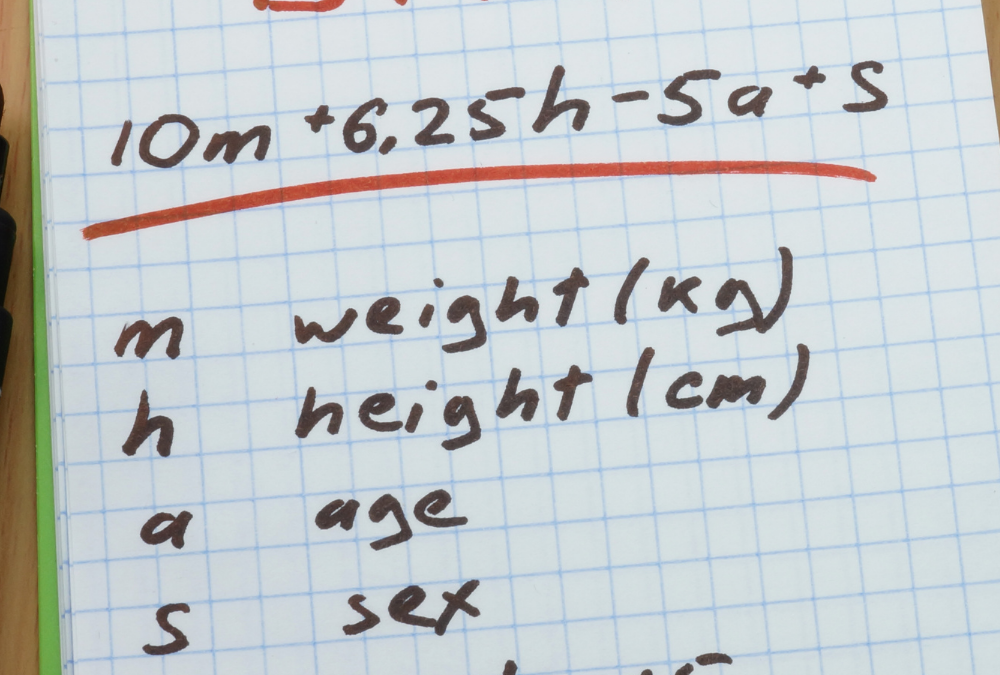 10m +6,25h - 5a + S
m weight (kg)
h height (cm)
a age
s sex